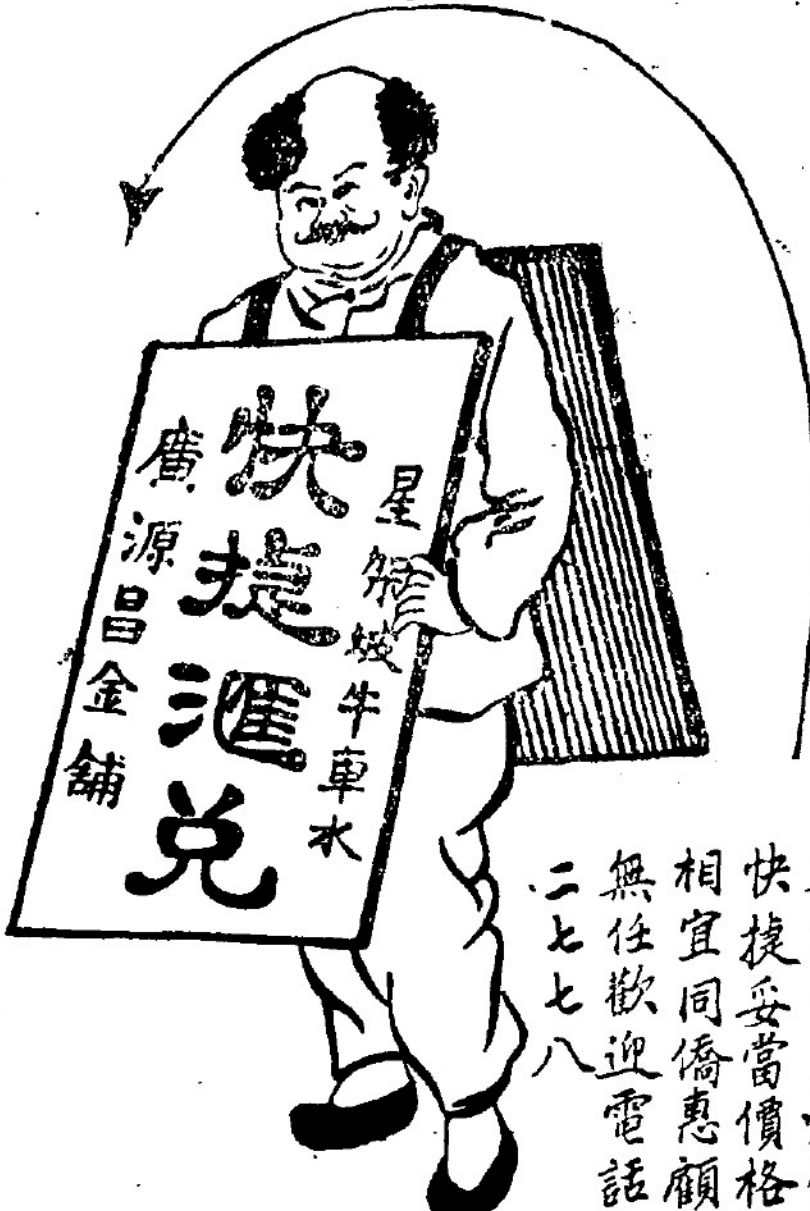 星架坡牛車水
快捷滙兌
廣源昌金舖
快捷妥當價格
相宜同僑惠顧
無任歡迎電話
二七七八